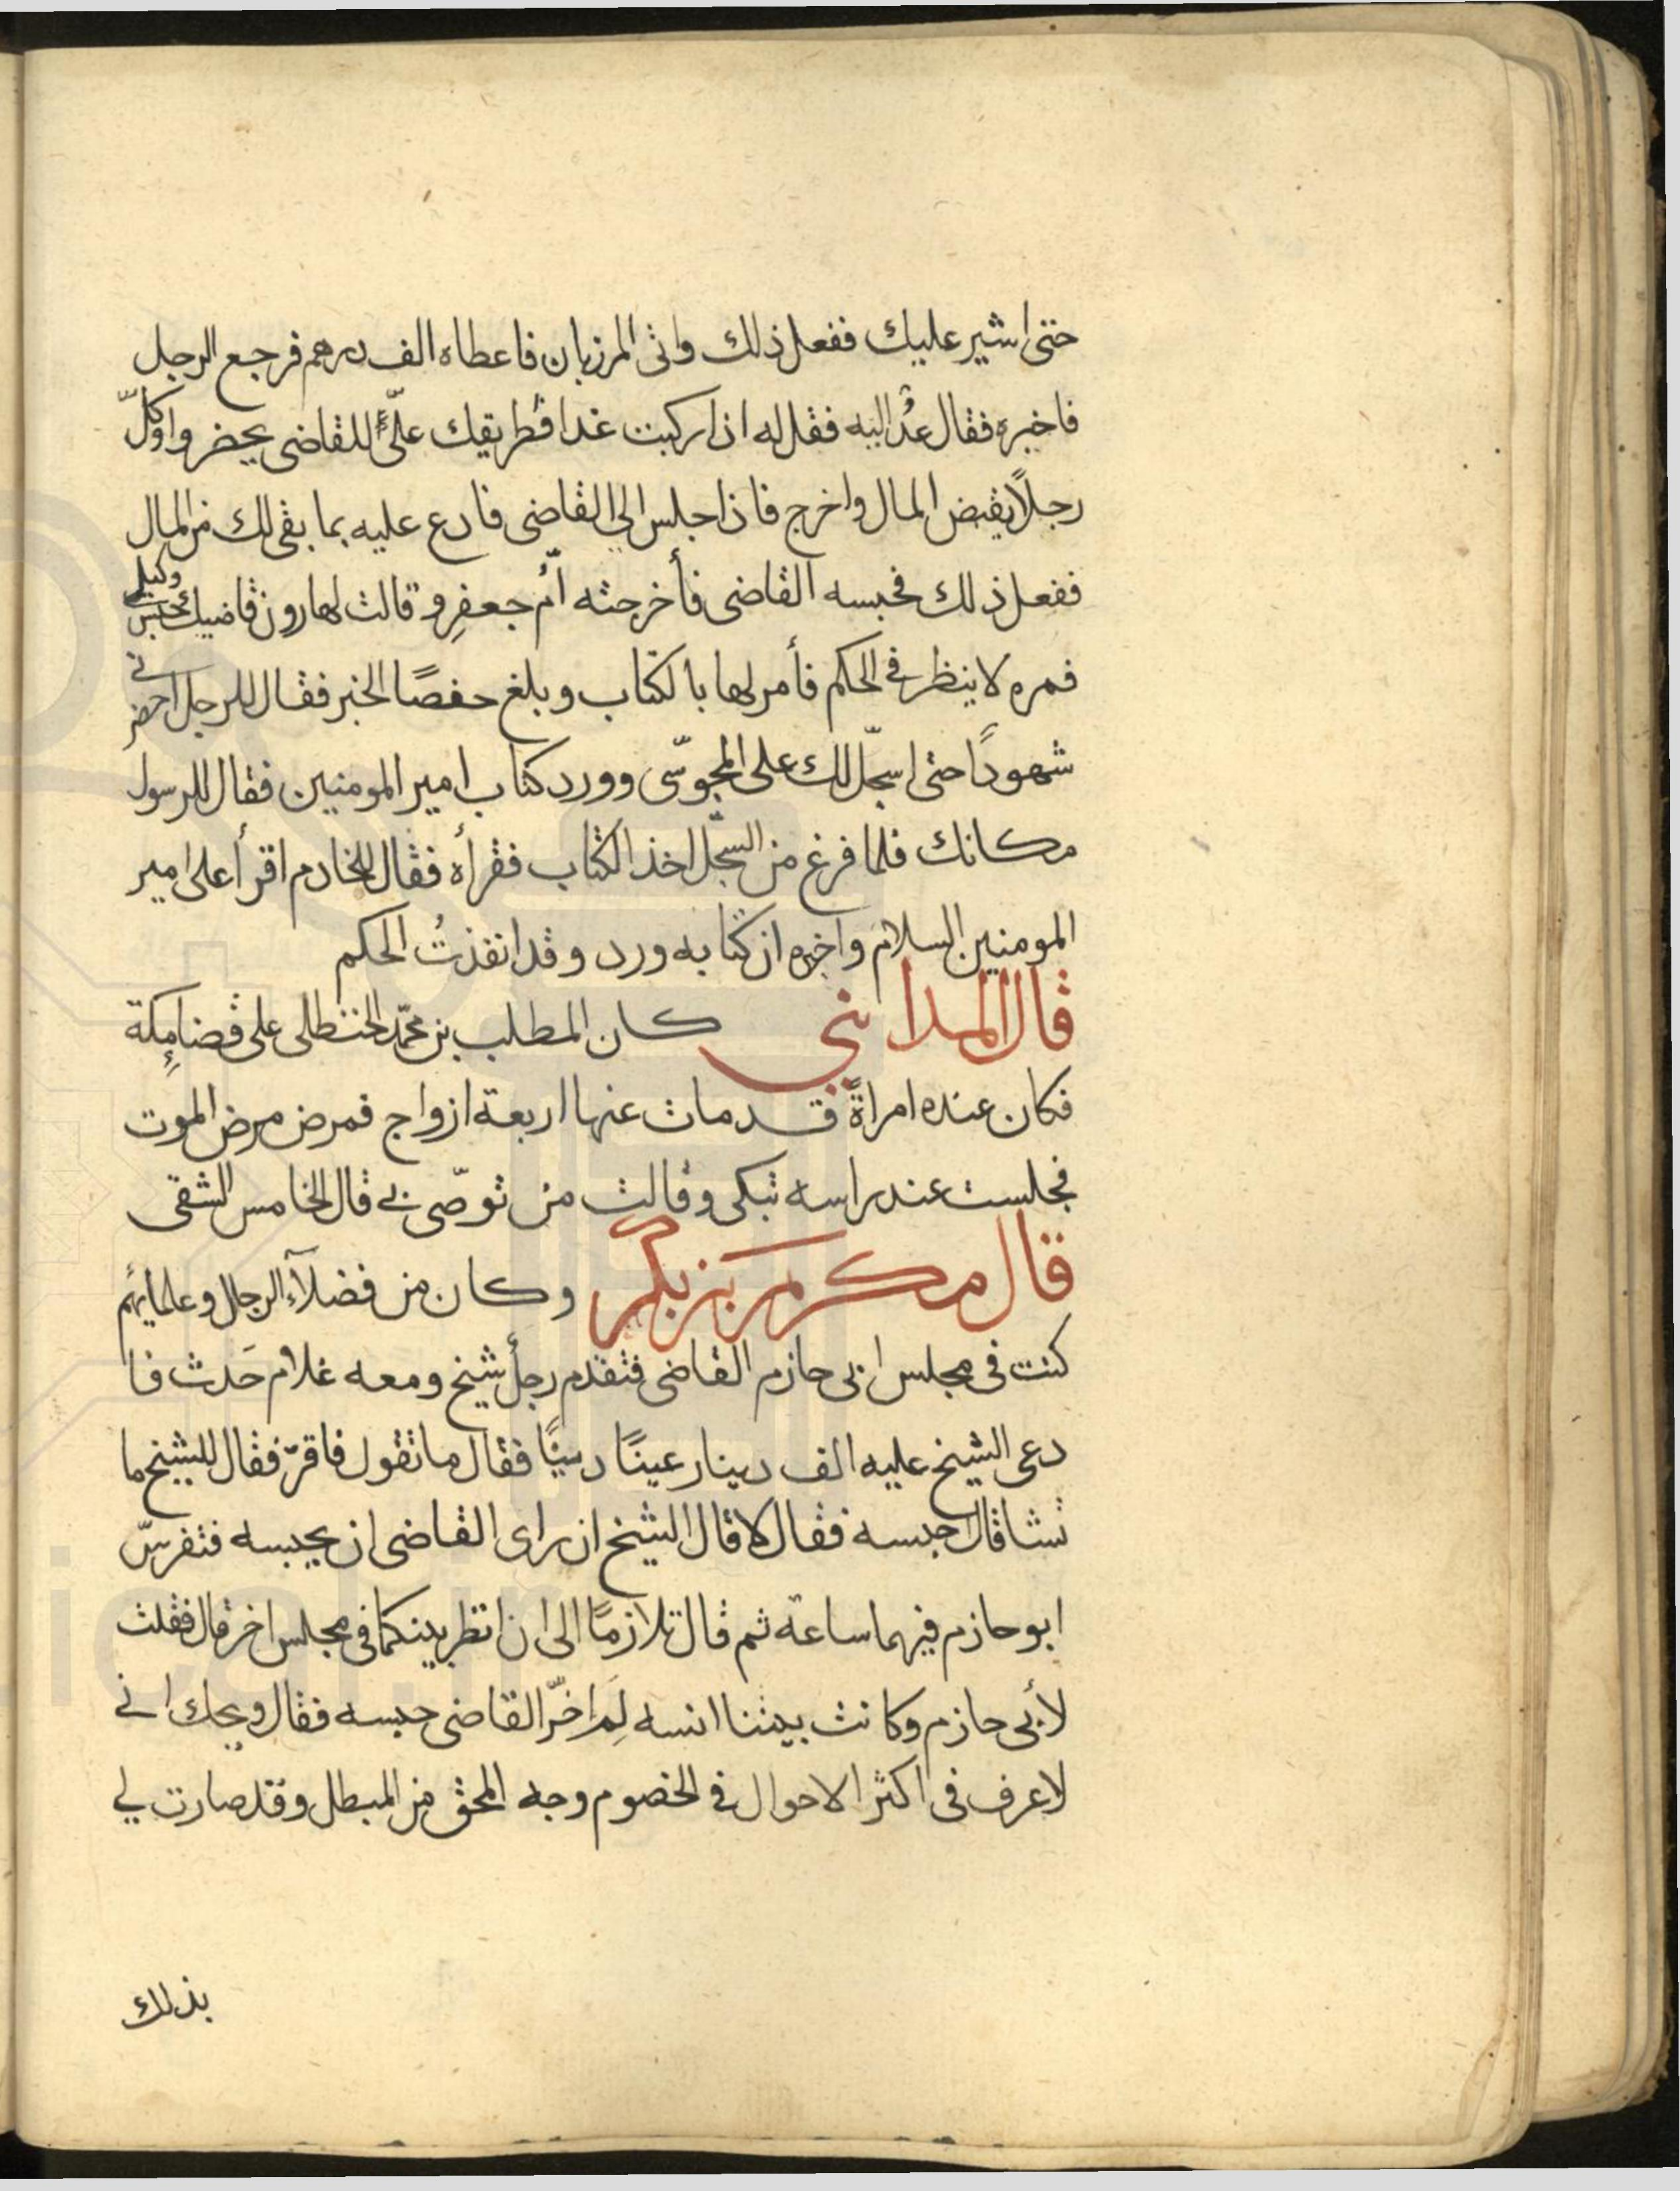 حتى اشير عليك ففعل ذلك واتى المرزبان فاعطاه الف درهم فرجع الرجل
فاخبره فقال عُد اليه فقل له اذا ركبت غدا فطريقك علىّ للقاضى يحضر واوكّل
رجلاً يقبض المال واخرج فاذا جلس الى القاضى فادع عليه بما بقى لك من المال
ففعل ذلك فحبسه القاضى فأخرجته اُم جعفرٍ وقالت لهارون قاضيك حبس وكيلى
فمره لا ينظر فى الحكم فأمر لها بالكتاب وبلغ حفصًا الخبر فقال للرجل احضرنى
شهودًا حتى اسجّل لك على المجوسّى وورد كتاب امير المومنين فقال للرسول
مكانك فلما فرغ من السجّل اخذ الكتاب فقرأه فقال للخادم اقرأ على امير
المومنين السلام واخبره ان كتابه ورد وقد انفذتُ الحكم
قال المداينى كان المطلب بن محمّد الحنطلى على قضاء مكة
فكان عنده امراةً قد مات عنها اربعة ازواج فمرض مرض الموت
فجلست عند راسه تبكى وقالت من توصّى بى قال الخامس الشقى
قال مكرم بن بكر وكان من فضلآء الرجال وعلمايهم
كنت فى مجلس ابى حازم القاضى فتقدم رجل شيخ ومعه غلام حَدث فا
دعى الشيخ عليه الف دينار عينًا دينًا فقال ما تقول فاقرّ فقال للشيخ ما
تشا قال حبسه فقال لا قال الشيخ ان راى القاضى ان يحبسه فتفرسّ
ابو حازم فيهما ساعة ثم قال تلازمًا الى ان انظر بينكما فى مجلس اخر قال فقلت
لأبى حازم وكانت بيننا انسه لِمَ اخّر القاضى حبسه فقال ويحك انى
لاعرف فى اكثر الاحوال فى الخصوم وجه المحق من المبطل وقد صارت لى
بذلك